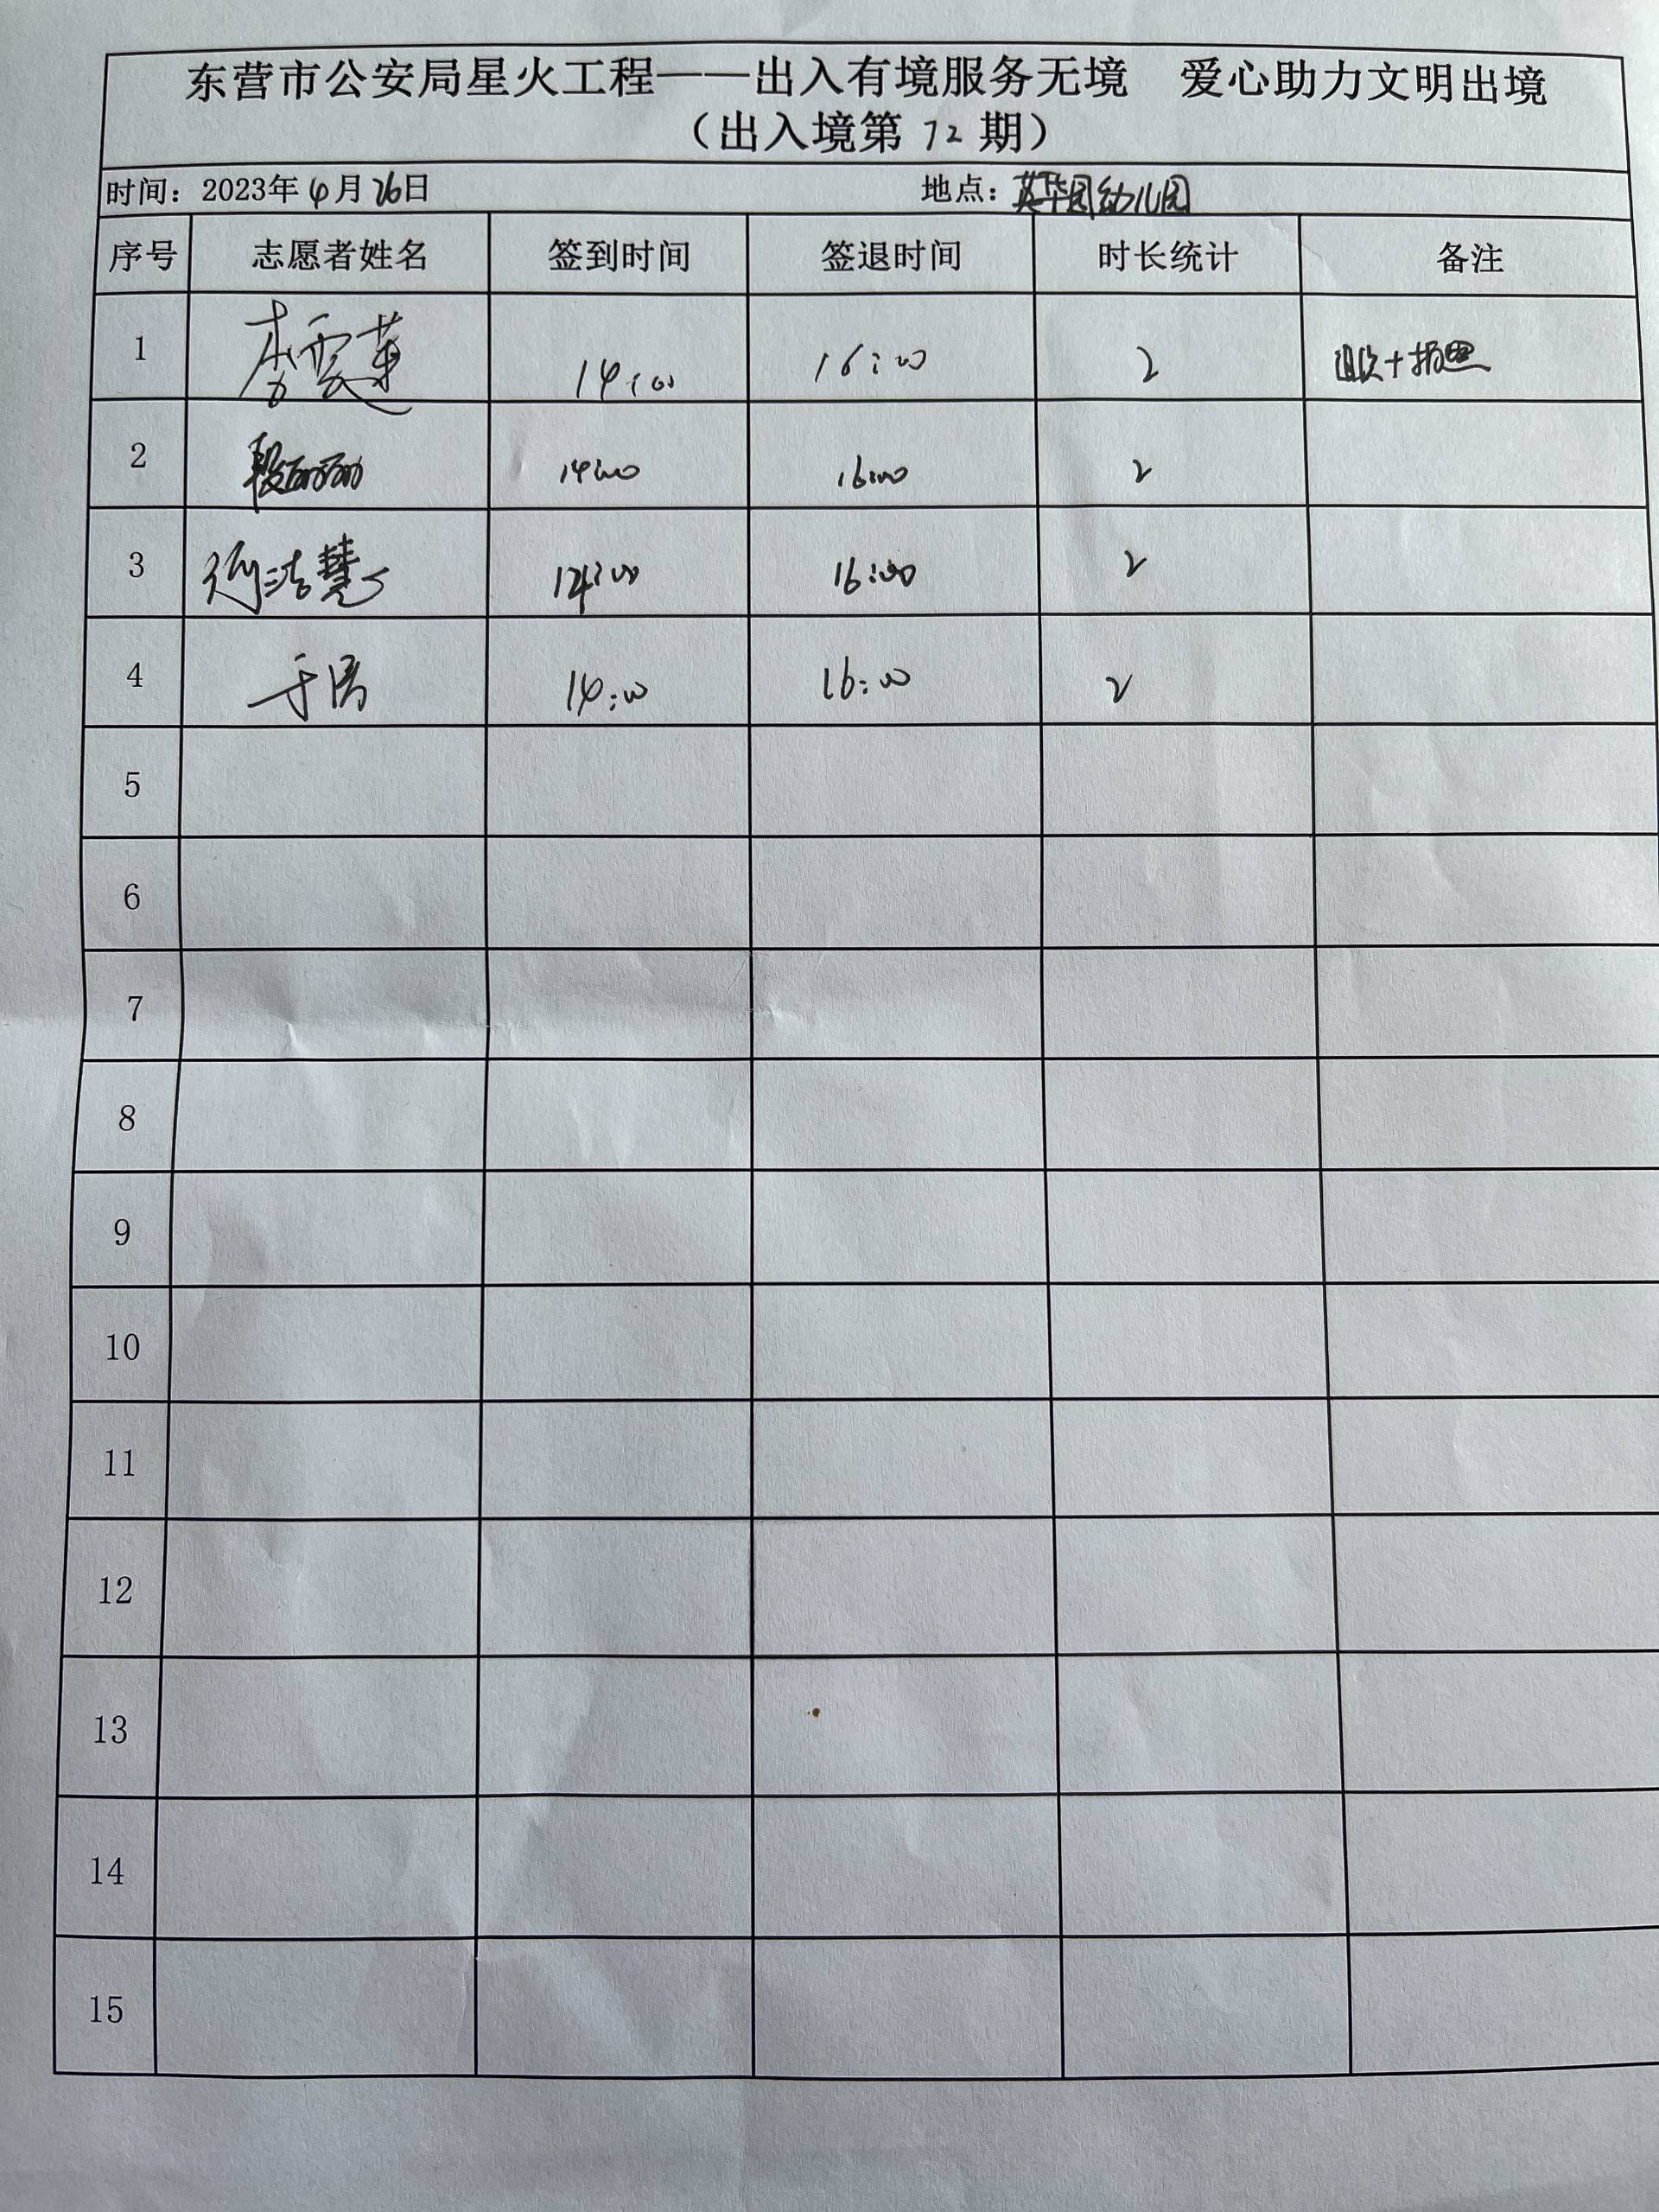 东营市公安局星火工程——出入有境服务无境 爱心助力文明出境
（出入境第 72 期）
时间：2023年 4月 26日 地点：英华园幼儿园
序号 志愿者姓名 签到时间 签退时间 时长统计 备注
1 李雲莲 14:00 16:00 2
2 段丽丽 14:00 16:00 2
3 慧 14:00 16:00 2
4 于 14:00 16:00 2
5
6
7
8
9
10
11
12
13
14
15